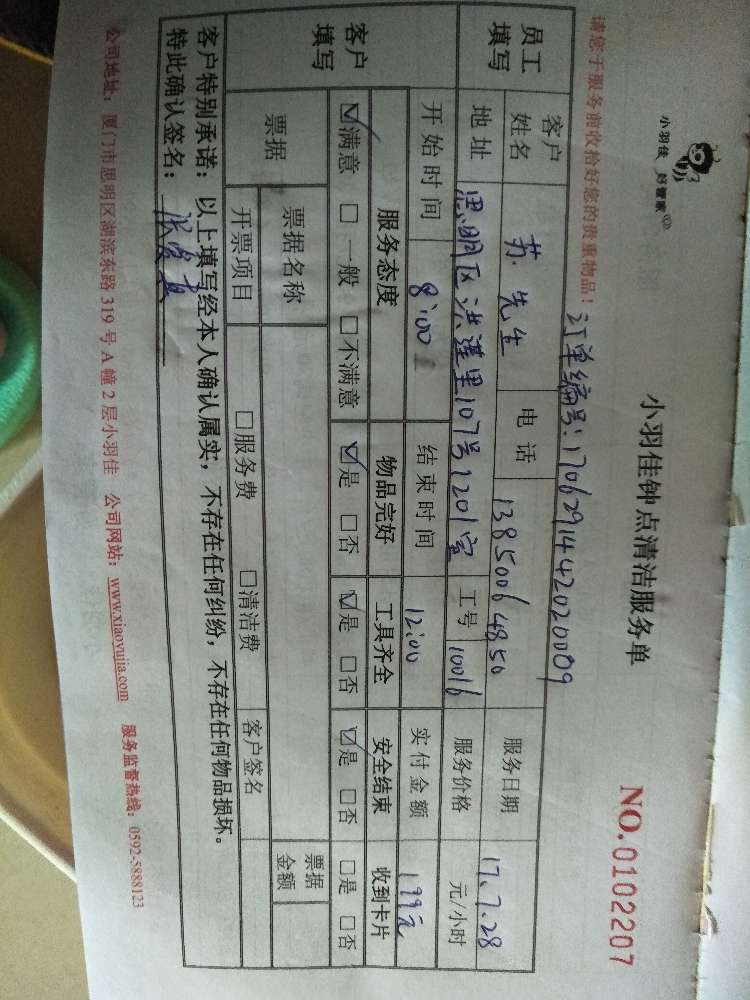 小羽佳 好管家
小羽佳钟点清洁服务单
NO.0102207
请您于服务前收拾好您的贵重物品！
订单编号：17062914442020009
员工填写
客户姓名 苏先生 电话 13850064850 服务日期 17.7.28
地址 思明区洪莲里107号1201室 工号 10016 服务价格 元/小时
开始时间 8:00 结束时间 12:00 实付金额 199元
客户填写
服务态度 物品完好 工具齐全 安全结束 收到卡片
☑满意 □一般 □不满意 ☑是 □否 ☑是 □否 ☑是 □否 □是 □否
票据 票据名称 票据金额
开票项目 □服务费 □清洁费 客户签名
客户特别承诺：以上填写经本人确认属实，不存在任何纠纷，不存在任何物品损坏。
特此确认签名：
公司地址：厦门市思明区湖滨东路 319 号 A 幢 2 层小羽佳 公司网站：www.xiaoyujia.com 服务监督热线：0592-5888123